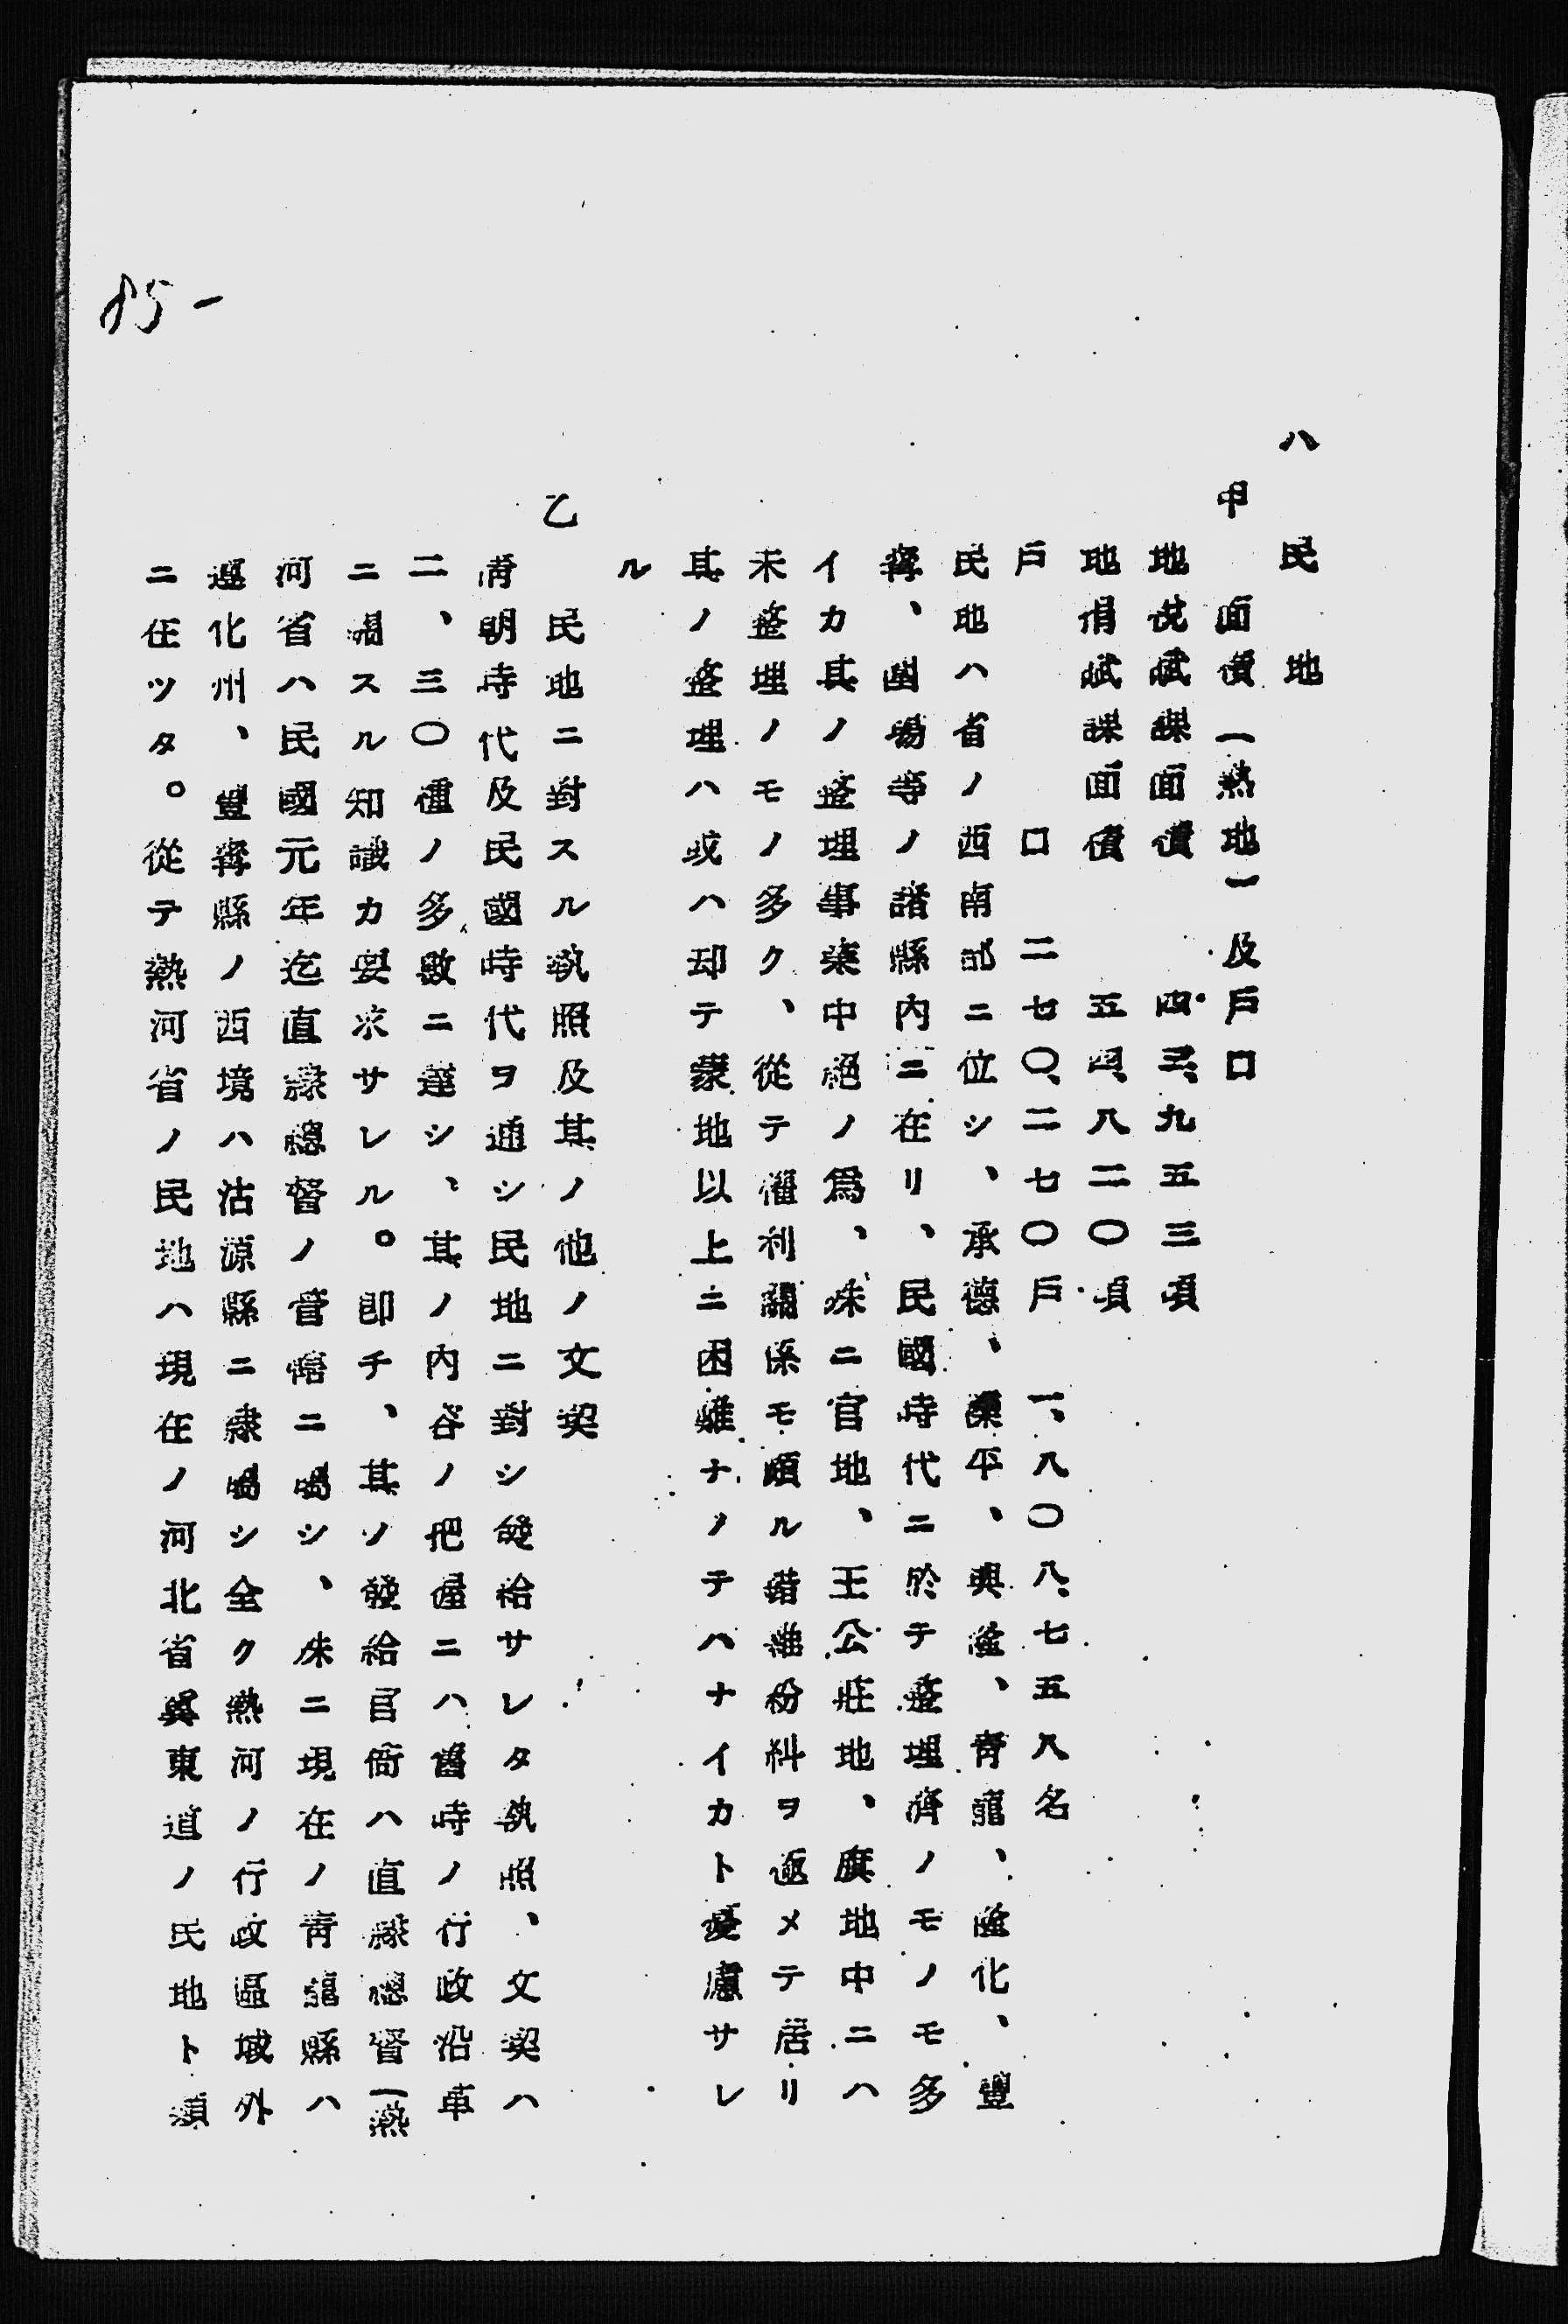 八 民地
甲 面積(熱地)及戶口
地稅賦課面積 四三、九五三頃
地捐賦課面積 五四、八二〇頃
戶口 二七〇、二七〇戶 一、八〇八、七五八名
民地ハ省ノ西南部ニ位シ、承德、灤平、興隆、靑龍、隆化、豐
寗、圍場等ノ諸縣內ニ在リ、民國時代ニ於テ整理濟ノモノモ多
イカ其ノ整理事業中絕ノ爲、殊ニ官地、王公莊地、旗地中ニハ
未整理ノモノ多ク、從テ權利關係モ頗ル錯雜紛糾ヲ極メテ居リ
其ノ整理ハ或ハ却テ蒙地以上ニ困難ナノテハナイカト憂慮サレ
ル
乙 民地ニ對スル執照及其ノ他ノ文契
淸明時代及民國時代ヲ通シ民地ニ對シ發給サレタ執照、文契ハ
二、三〇種ノ多數ニ達シ、其ノ內容ノ把握ニハ當時ノ行政沿革
ニ關スル知識カ要求サレル。卽チ、其ノ發給官衙ハ直隸總督(熱
河省ハ民國元年迄直隸總督ノ管轄ニ屬シ、殊ニ現在ノ靑龍縣ハ
遵化州、豐寗縣ノ西境ハ沽源縣ニ隸屬シ全ク熱河ノ行政區域外
ニ在ツタ。從テ熱河省ノ民地ハ現在ノ河北省冀東道ノ民地ト類
85-